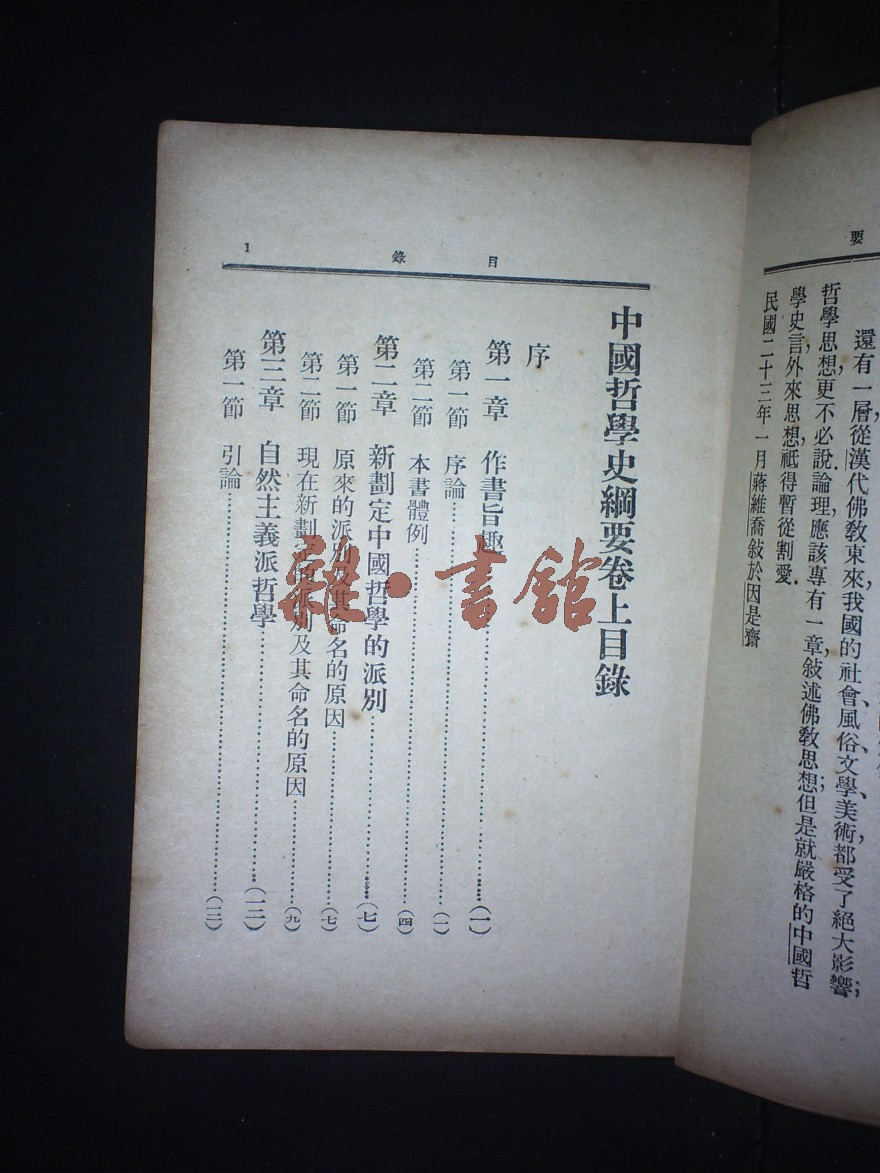 要
還有一層從漢代佛敎東來，我國的社會、風俗、文學、美術，都受了絕大影響；
哲學思想，更不必說論理，應該專有一章敍述佛敎思想；但是就嚴格的中國哲
學史言，外來思想，祗得暫從割愛．
民國二十三年一月蔣維喬敍於因是齋
目錄
1
中國哲學史綱要卷上目錄
序
第一章 作書旨趣……(一)
第一節 序論……(一)
第二節 本書體例……(四)
第二章 新劃定中國哲學的派別……(七)
第一節 原來的派別及其命名的原因……(七)
第二節 現在新劃定的派別及其命名的原因……(九)
第三章 自然主義派哲學……(一二)
第一節 引論……(一二)
雜·書館